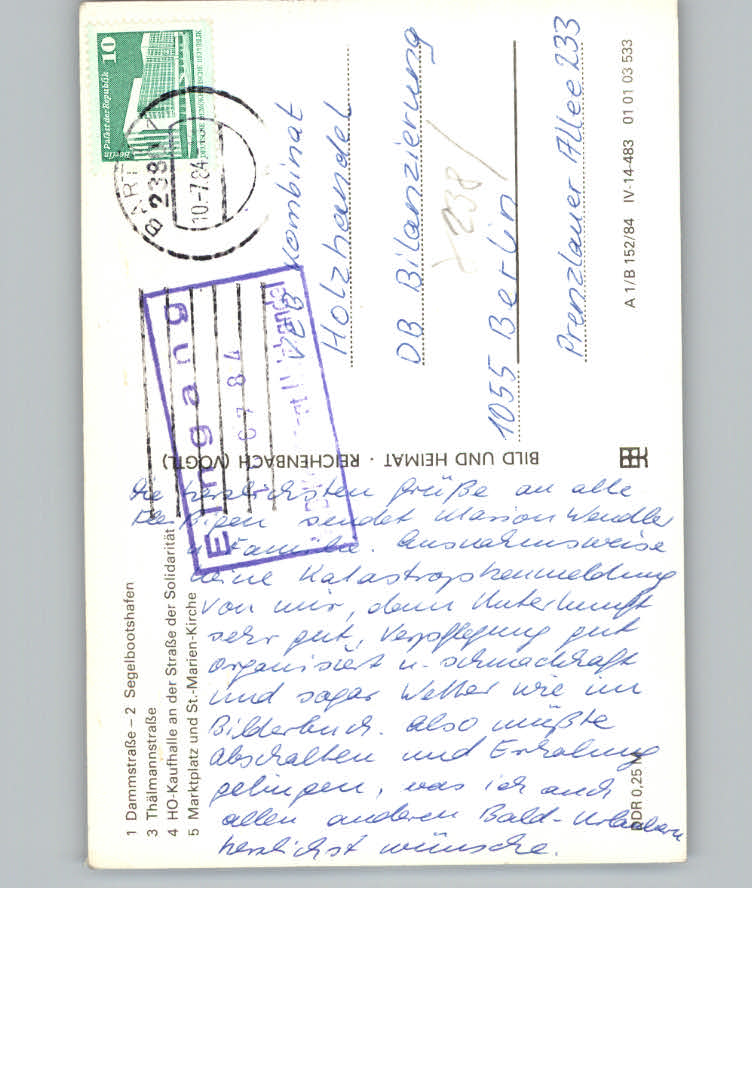 10
Palast der Republik
Berlin
DEUTSCHE DEMOKRATISCHE REPUBLIK
BART
238
10.-7.84
Eingang
07 84
VEB Kombinat
Holzhandel
DB Bilanzierung
238/
1055 Berlin
Prenzlauer Allee 233
A 1/B 152/84 IV-14-483 01 01 03 533
BILD UND HEIMAT · REICHENBACH (VOGTL)
1 Dammstraße – 2 Segelbootshafen
3 Thälmannstraße
4 HO-Kaufhalle an der Straße der Solidarität
5 Marktplatz und St.-Marien-Kirche
DDR 0,25 M
Die herzlichsten Grüße an alle
Fleißigen sendet Marion Wendler
u. Familie. Ausnahmsweise
keine Katastrophenmeldung
von mir, denn Unterkunft
sehr gut, Verpflegung gut
organisiert u. schmackhaft
und sogar Wetter wie im
Bilderbuch. Also müßte
abschalten und Erholung
gelingen, was ich auch
allen anderen Bald-Urlaubern
herzlichst wünsche.